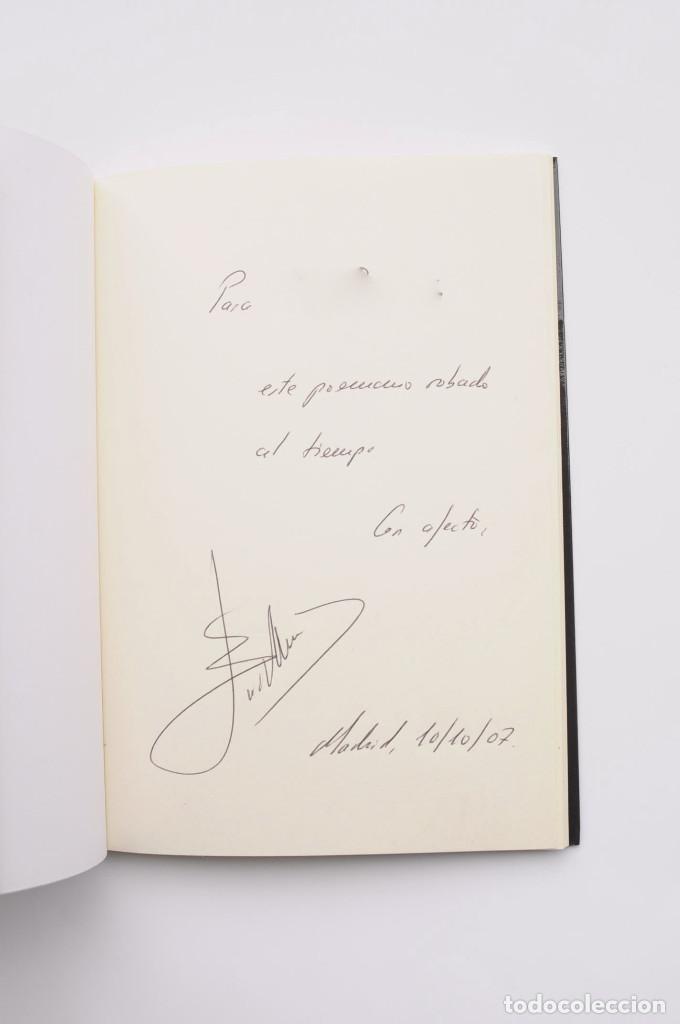 Para
este poemario robado
al tiempo
Con afecto,
Madrid, 10/10/07.
todocoleccion